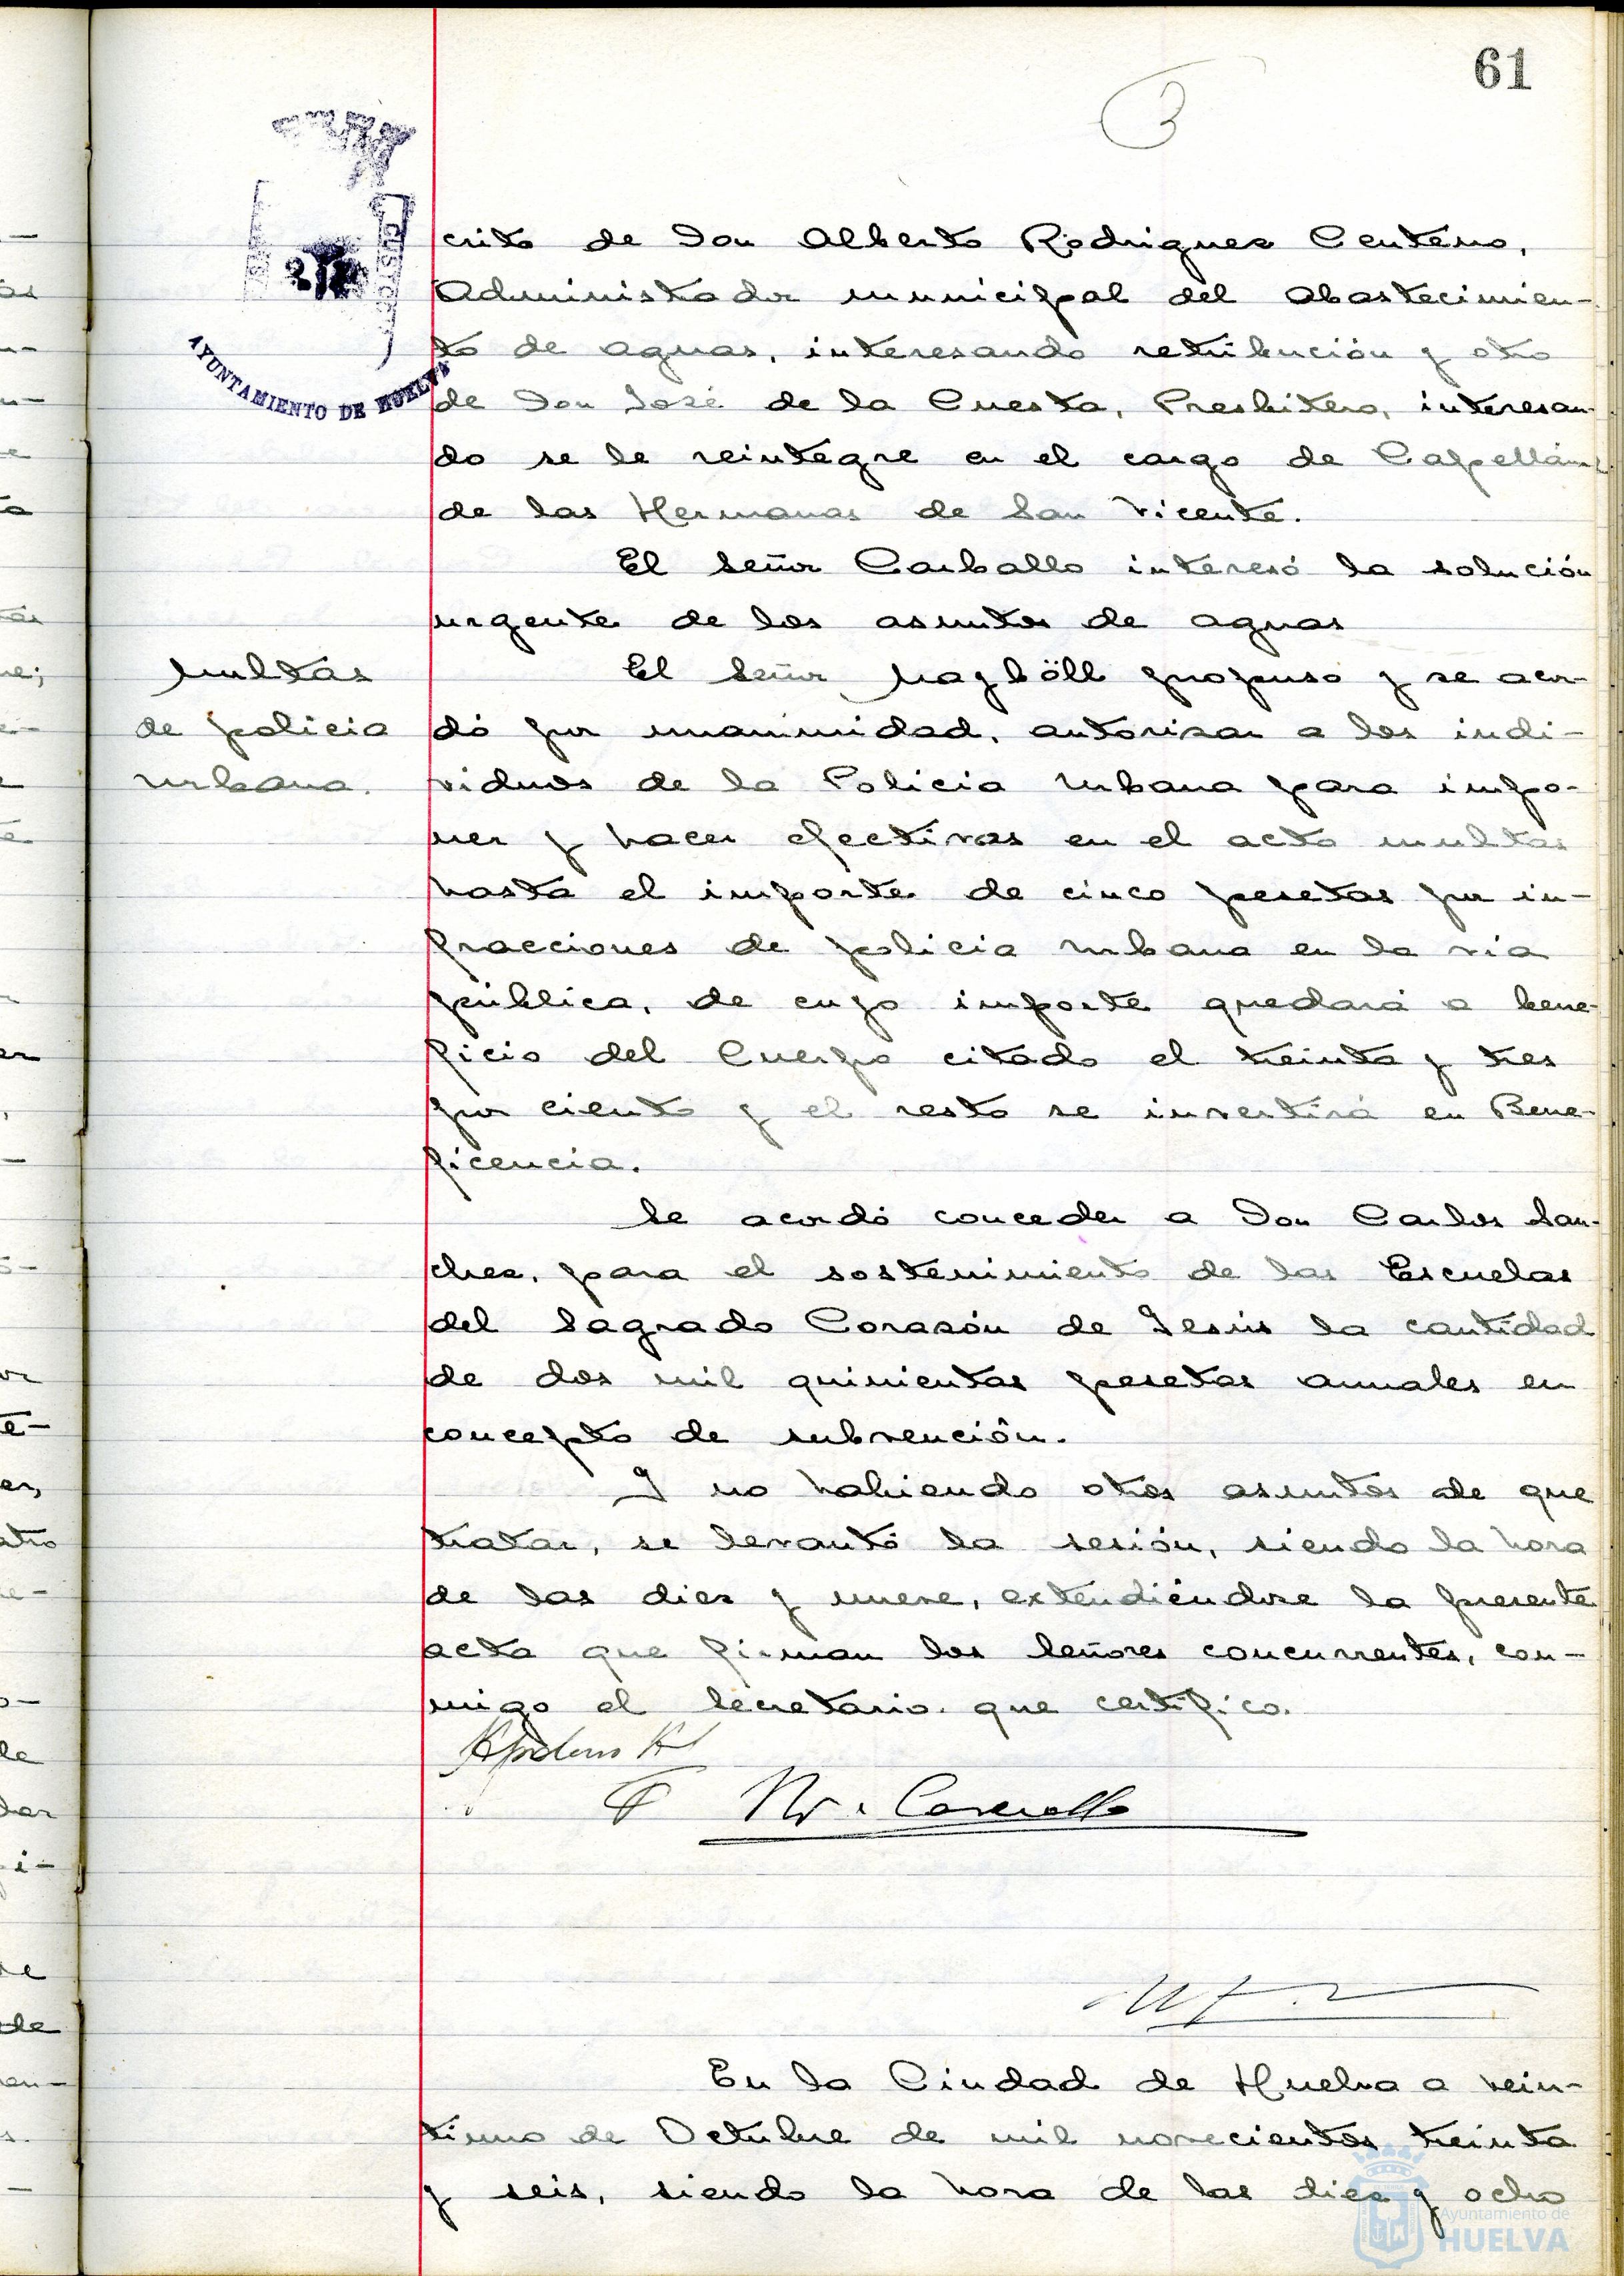 61
3
AYUNTAMIENTO DE HUELVA
crito de Don Alberto Rodriguez Centeno,
Administrador municipal del Abastecimien-
to de aguas, interesando retribución y otro
de Don José de la Cuesta, Presbitero, interesan-
do se le reintegre en el cargo de Capellán
de las Hermanas de San Vicente.
El Señor Carballo interesó la solución
urgente de los asuntos de aguas
Multas
de policia
urbana.
El Señor propuso y se acor-
dó por unanimidad, autorizar a los indi-
viduos de la Policia Urbana para impo-
ner y hacer efectivas en el acto multas
hasta el importe de cinco pesetas por in-
fracciones de policia urbana en la via
pública, de cuyo importe quedará a bene-
ficio del Cuerpo citado el treinta y tres
por ciento y el resto se invertirá en Bene-
ficencia.
Se acordó conceder a Don Carlos San-
chez, para el sostenimiento de las Escuelas
del Sagrado Corazón de Jesús la cantidad
de dos mil quinientas pesetas anuales en
concepto de subvención.
Y no habiendo otros asuntos de que
tratar, se levantó la sesión, siendo la hora
de las diez y nueve, extendiéndose la presente
acta que firman los Señores concurrentes, con-
migo el Secretario que certifico.
En la Ciudad de Huelva a vein-
tiuno de Octubre de mil novecientos treinta
y seis, siendo la hora de las diez y ocho
Ayuntamiento de
HUELVA